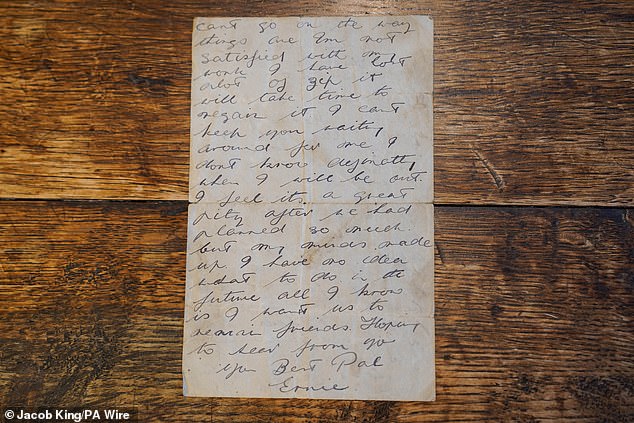 cant go on the way
things are Im not
satisfied with my
work I have lost
alot of zip it
will take time to
regain it I cant
keep you waiting
around for me I
dont know definatly
when I will be out.
I feel its a great
pity after we had
planned so much.
but my minds made
up I have no idea
what to do in the
future all I know
is I want us to
remain friends Hoping
to hear from you
Your Best Pal
Ernie
© Jacob King/PA Wire